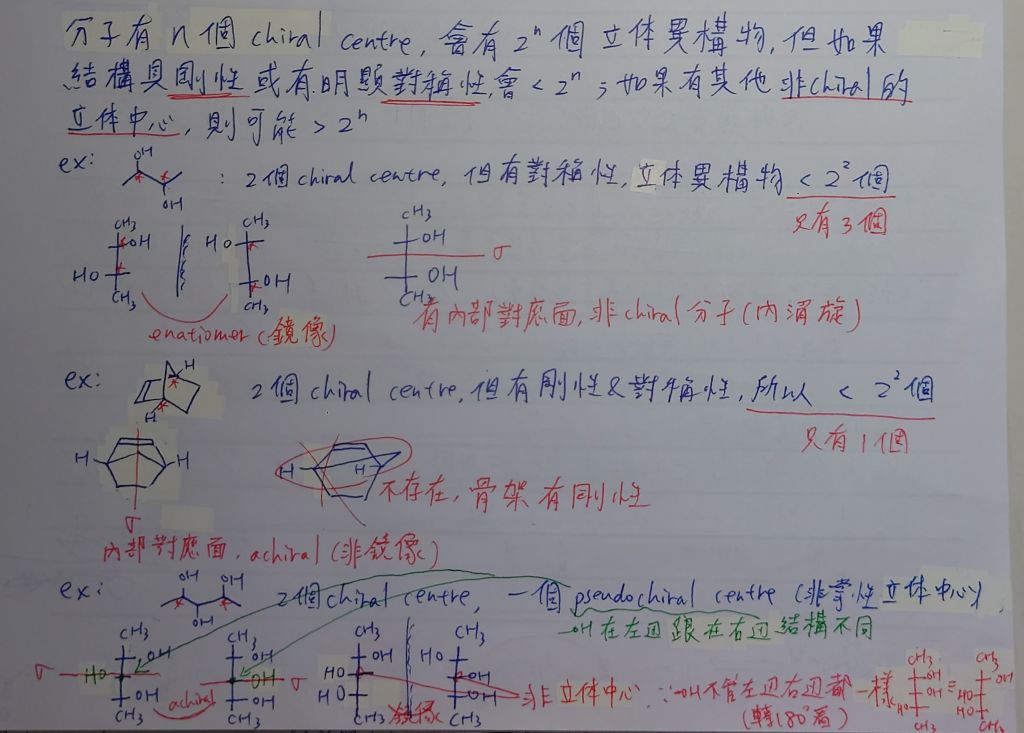 分子有 n 個 chiral centre, 會有 2ⁿ 個 立体異構物, 但如果
結構具剛性 或有明顯對稱性, 會 < 2ⁿ ; 如果有其他 非chiral的
立体中心, 則可能 > 2ⁿ
ex: OH OH : 2個 chiral centre, 但有對稱性, 立体異構物 < 2² 個
只有3個
CH₃ OH HO CH₃
CH₃ HO OH CH₃
CH₃ OH OH CH₃ σ
enatiomer (鏡像)
有內部對應面, 非chiral分子 (內消旋)
ex: H H 2個 chiral centre, 但有剛性&對稱性, 所以 < 2² 個
只有1個
H H σ
H H 不存在, 骨架有剛性
內部對應面, achiral (非鏡像)
ex: OH OH OH 2個chiral centre, 一個 pseudochiral centre (非掌性立体中心)
-OH在左边跟在右边結構不同
σ CH₃ OH HO OH CH₃
CH₃ OH OH OH CH₃ σ
achiral
CH₃ OH HO HO CH₃
CH₃ HO OH OH CH₃
鏡像
非立体中心 ∵ -OH不管左边右边都一樣
(轉180°看)
CH₃ OH OH HO CH₃ ≡ CH₃ OH HO HO CH₃